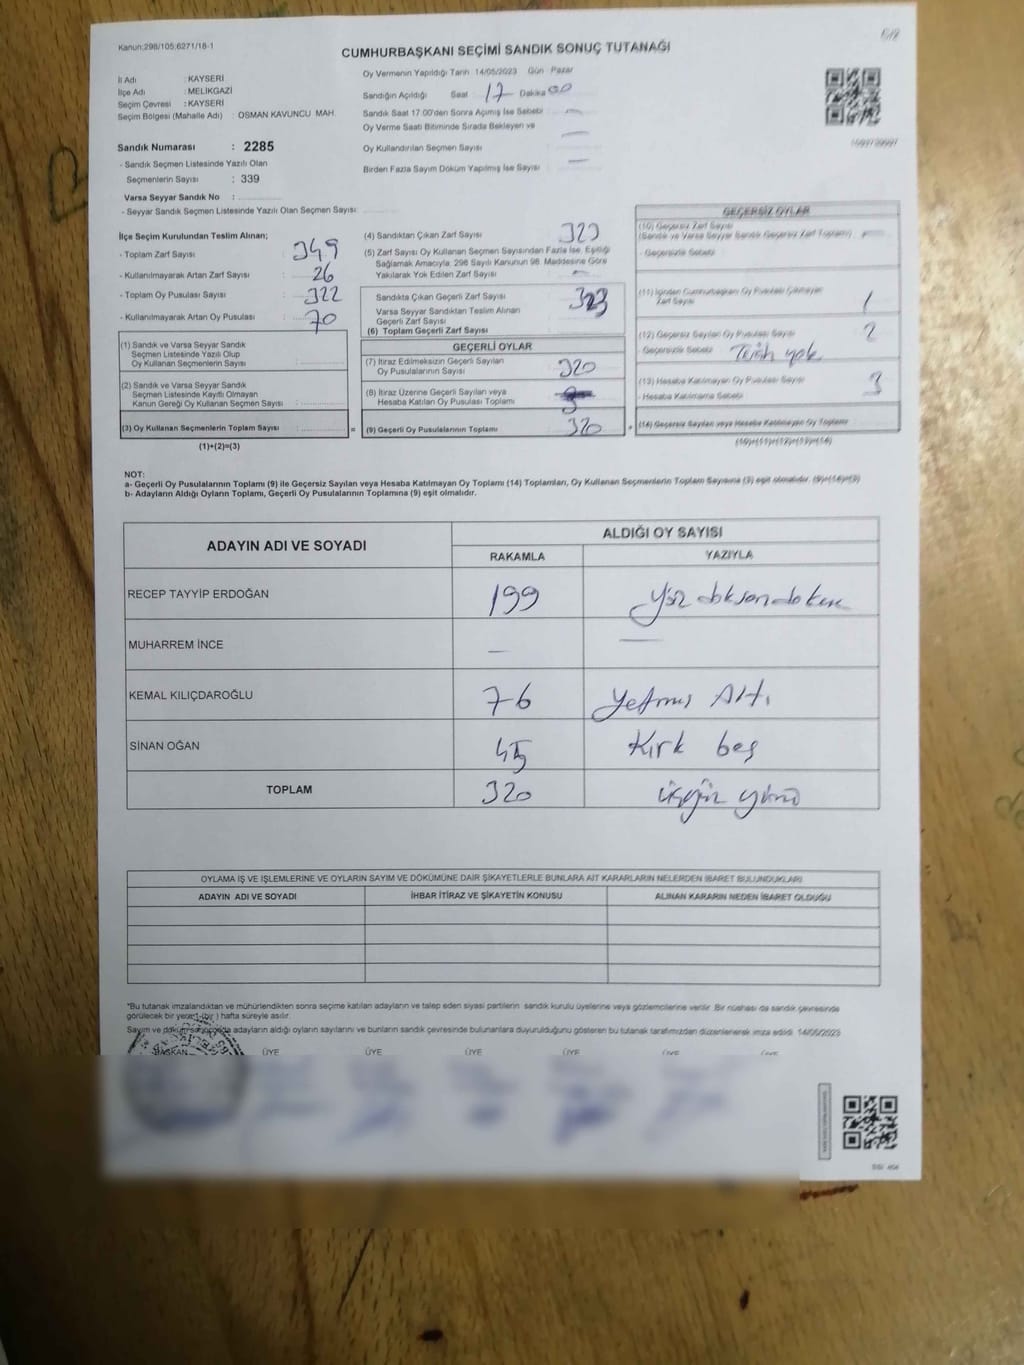 Kanun:298/105;6271/18-1
CUMHURBAŞKANI SEÇİMİ SANDIK SONUÇ TUTANAĞI
İl Adı : KAYSERİ
İlçe Adı : MELİKGAZİ
Seçim Çevresi : KAYSERİ
Seçim Bölgesi (Mahalle Adı) : OSMAN KAVUNCU MAH.
Sandık Numarası : 2285
- Sandık Seçmen Listesinde Yazılı Olan
Seçmenlerin Sayısı : 339
Varsa Seyyar Sandık No :
- Seyyar Sandık Seçmen Listesinde Yazılı Olan Seçmen Sayısı:
Oy Vermenin Yapıldığı Tarih 14/05/2023 Gün Pazar
Sandığın Açıldığı Saat 17 Dakika 00
Sandık Saat 17.00'den Sonra Açılmış İse Sebebi :
Oy Verme Saati Bitiminde Sırada Bekleyen ve
Oy Kullandırılan Seçmen Sayısı :
Birden Fazla Sayım Döküm Yapılmış İse Sayısı :
İlçe Seçim Kurulundan Teslim Alınan;
- Toplam Zarf Sayısı : 349
- Kullanılmayarak Artan Zarf Sayısı : 26
- Toplam Oy Pusulası Sayısı : 322
- Kullanılmayarak Artan Oy Pusulası : 70
(1) Sandık ve Varsa Seyyar Sandık
Seçmen Listesinde Yazılı Olup
Oy Kullanan Seçmenlerin Sayısı :
(2) Sandık ve Varsa Seyyar Sandık
Seçmen Listesinde Kayıtlı Olmayan
Kanun Gereği Oy Kullanan Seçmen Sayısı :
(3) Oy Kullanan Seçmenlerin Toplam Sayısı : =
(1)+(2)=(3)
(4) Sandıktan Çıkan Zarf Sayısı : 323
(5) Zarf Sayısı Oy Kullanan Seçmen Sayısından Fazla İse, Eşitliği
Sağlamak Amacıyla, 298 Sayılı Kanunun 98. Maddesine Göre
Yakılarak Yok Edilen Zarf Sayısı :
Sandıkta Çıkan Geçerli Zarf Sayısı : 323
Varsa Seyyar Sandıktan Teslim Alınan
Geçerli Zarf Sayısı
(6) Toplam Geçerli Zarf Sayısı :
GEÇERLİ OYLAR
(7) İtiraz Edilmeksizin Geçerli Sayılan
Oy Pusulalarının Sayısı : 320
(8) İtiraz Üzerine Geçerli Sayılan veya
Hesaba Katılan Oy Pusulası Toplamı :
(9) Geçerli Oy Pusulalarının Toplamı : 320 +
GEÇERSİZ OYLAR
(10) Geçersiz Zarf Sayısı
(Sandık ve Varsa Seyyar Sandık Geçersiz Zarf Toplamı) :
- Geçersizlik Sebebi :
(11) İçinden Cumhurbaşkanı Oy Pusulası Çıkmayan
Zarf Sayısı : 1
(12) Geçersiz Sayılan Oy Pusulası Sayısı : 2
- Geçersizlik Sebebi : Tercih yok
(13) Hesaba Katılmayan Oy Pusulası Sayısı : 3
- Hesaba Katılmama Sebebi :
(14) Geçersiz Sayılan veya Hesaba Katılmayan Oy Toplamı :
(10)+(11)+(12)+(13)=(14)
NOT:
a- Geçerli Oy Pusulalarının Toplamı (9) ile Geçersiz Sayılan veya Hesaba Katılmayan Oy Toplamı (14) Toplamları, Oy Kullanan Seçmenlerin Toplam Sayısına (3) eşit olmalıdır. (9)+(14)=(3)
b- Adayların Aldığı Oyların Toplamı, Geçerli Oy Pusulalarının Toplamına (9) eşit olmalıdır.
ADAYIN ADI VE SOYADI
ALDIĞI OY SAYISI
RAKAMLA YAZIYLA
RECEP TAYYİP ERDOĞAN 199 Yüz doksan dokuz
MUHARREM İNCE — —
KEMAL KILIÇDAROĞLU 76 Yetmiş Altı
SİNAN OĞAN 45 Kırk beş
TOPLAM 320 üçyüz yirmi
OYLAMA İŞ VE İŞLEMLERİNE VE OYLARIN SAYIM VE DÖKÜMÜNE DAİR ŞİKAYETLERLE BUNLARA AİT KARARLARIN NELERDEN İBARET BULUNDUKLARI
ADAYIN ADI VE SOYADI İHBAR İTİRAZ VE ŞİKAYETİN KONUSU ALINAN KARARIN NEDEN İBARET OLDUĞU
*Bu tutanak imzalandıktan ve mühürlendikten sonra seçime katılan adayların ve talep eden siyasi partilerin sandık kurulu üyelerine veya gözlemcilerine verilir. Bir nüshası da sandık çevresinde
görülecek bir yere 1 (bir ) hafta süreyle asılır.
Sayım ve döküm sonucunda adayların aldığı oyların sayılarını ve bunların sandık çevresinde bulunanlara duyurulduğunu gösteren bu tutanak tarafımızdan düzenlenerek imza edildi. 14/05/2023
BAŞKAN ÜYE ÜYE ÜYE ÜYE ÜYE ÜYE